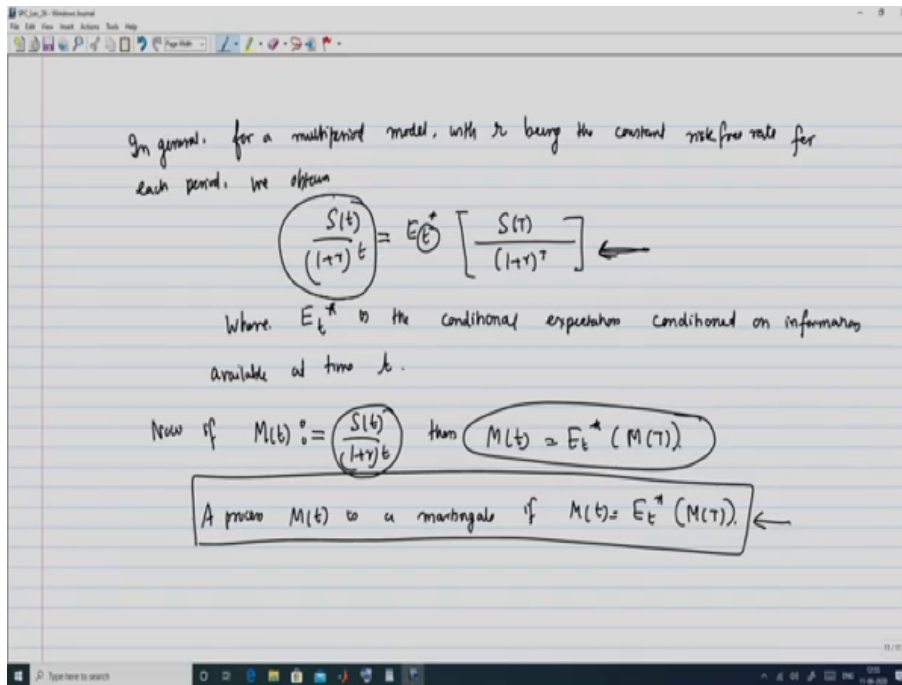 IPC_Lec_26 - Windows Journal
File Edit View Insert Actions Tools Help
Page Width
In general, for a multiperiod model, with r being the constant risk free rate for
each period, we obtain
S(t)/(1+r)^t = E_t^* [ S(T)/(1+r)^T ]
Where E_t^* is the conditional expectation conditioned on information
available at time t.
Now if M(t) := S(t)/(1+r)^t then M(t) = E_t^* (M(T)).
A process M(t) is a martingale if M(t) = E_t^* (M(T)).
11 / 11
Type here to search
ENG
11-06-2020